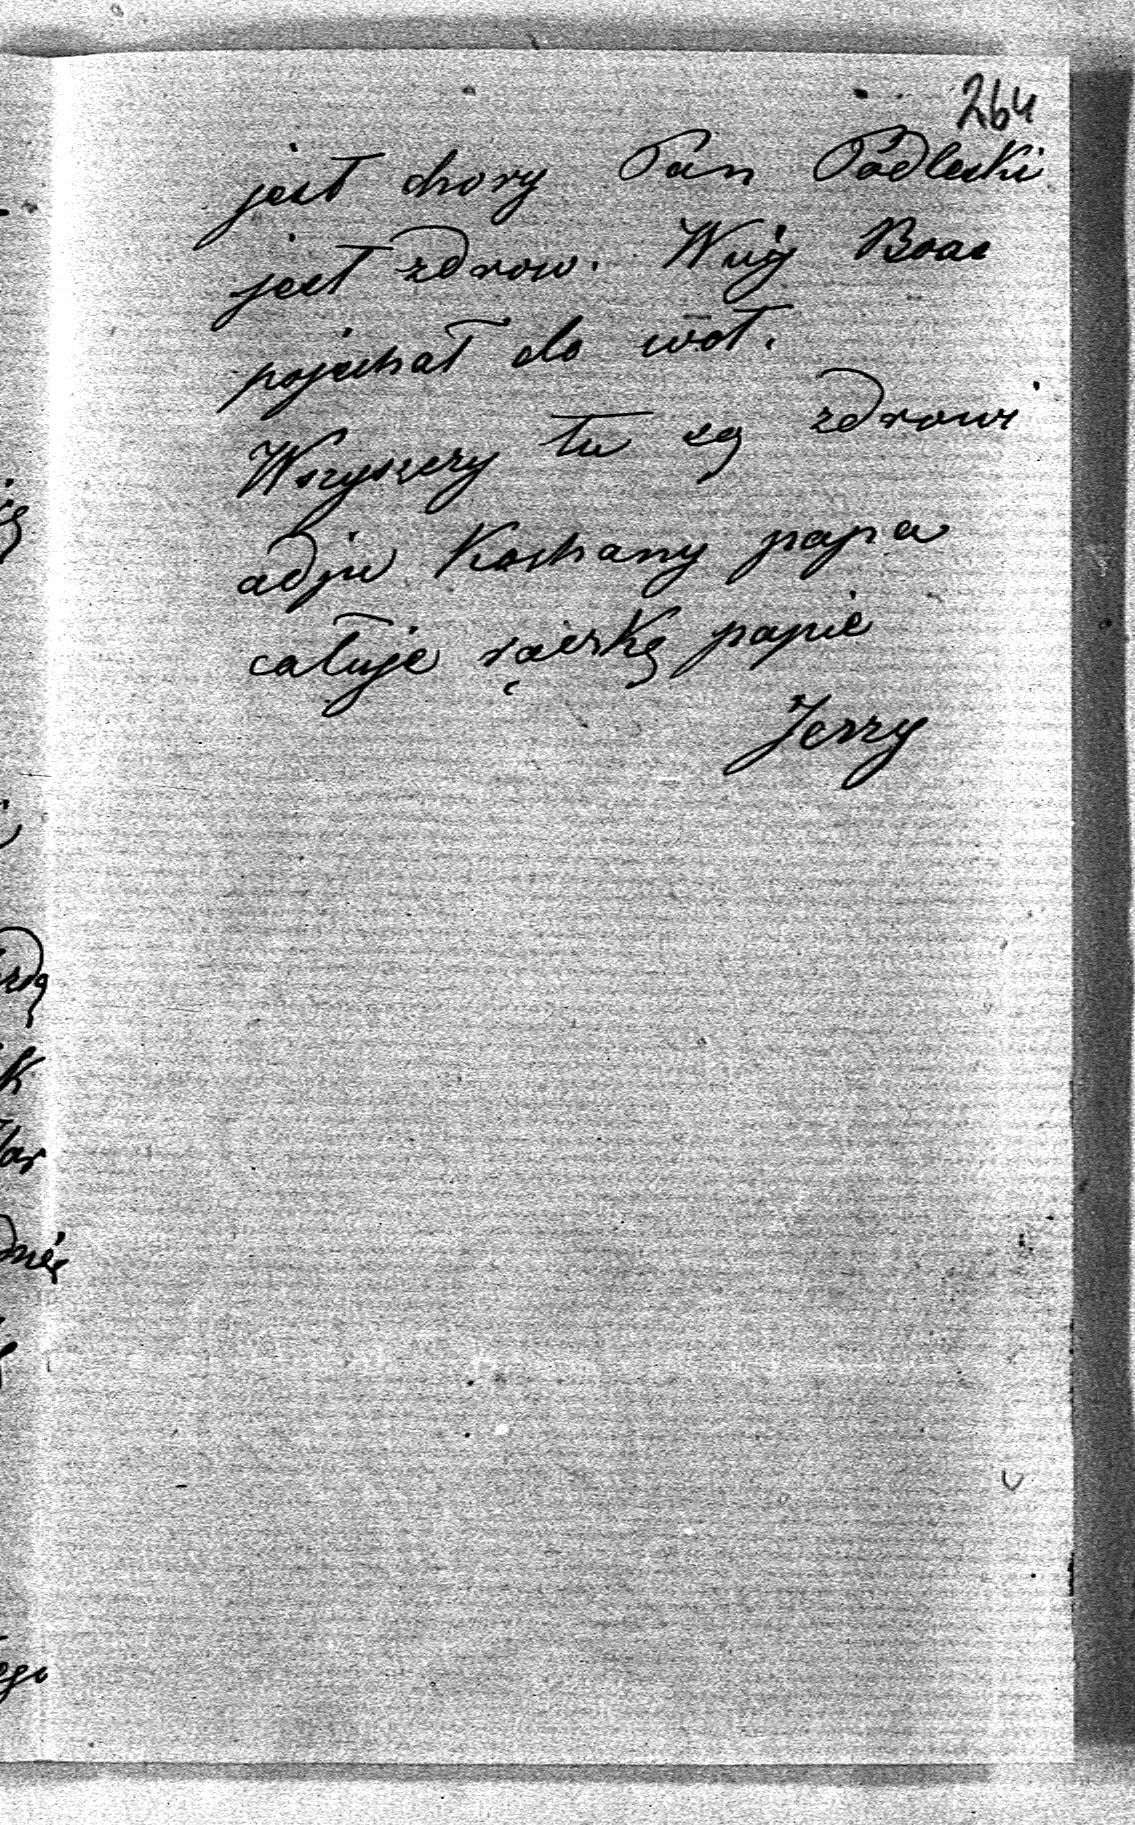 264
jest chory Pan Podleski
jest zdrow. Wuj
pojechał do
Wszyszczy tu są zdrowi
adju Kochany papa
całuje rączkę papie
Jerzy